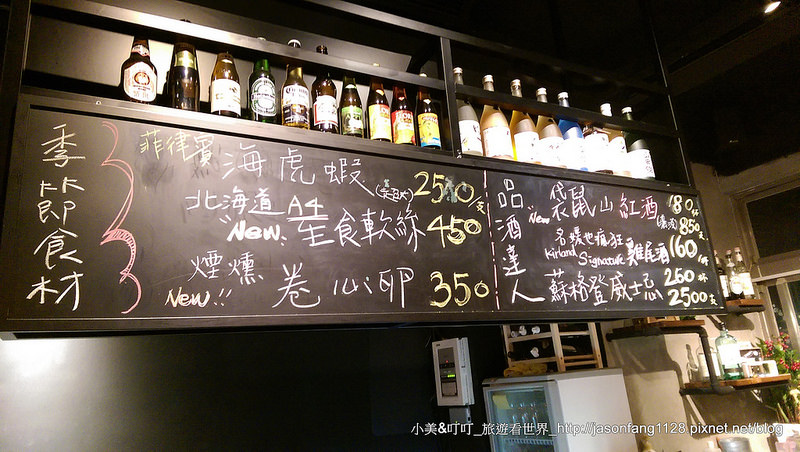 季節食材
菲律賓 海虎蝦 2500/支
北海道 A4
New. 生食軟絲 450
煙燻
New!! 卷心卵 350
品酒達人
New 袋鼠山紅酒 180/杯
850
名媛也瘋狂
Kirland Signature 雞尾酒 160/杯
蘇格登威士忌 260/杯
2500/支
小美&叮叮_旅遊看世界_http://jasonfang1128.pixnet.net/blog